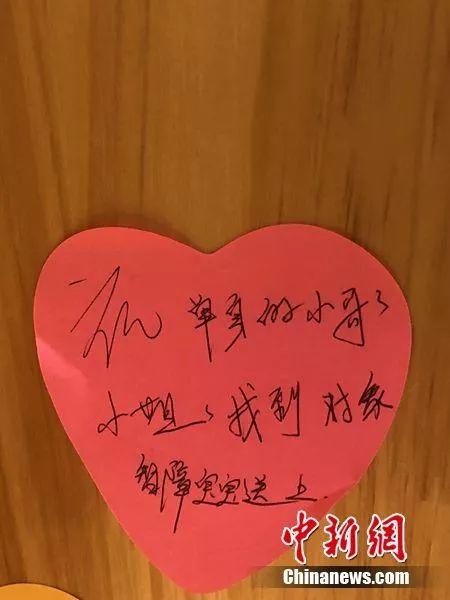 祝 单身的小哥々
小姐々找到对象
智障 送上.
中新網
Chinanews.com